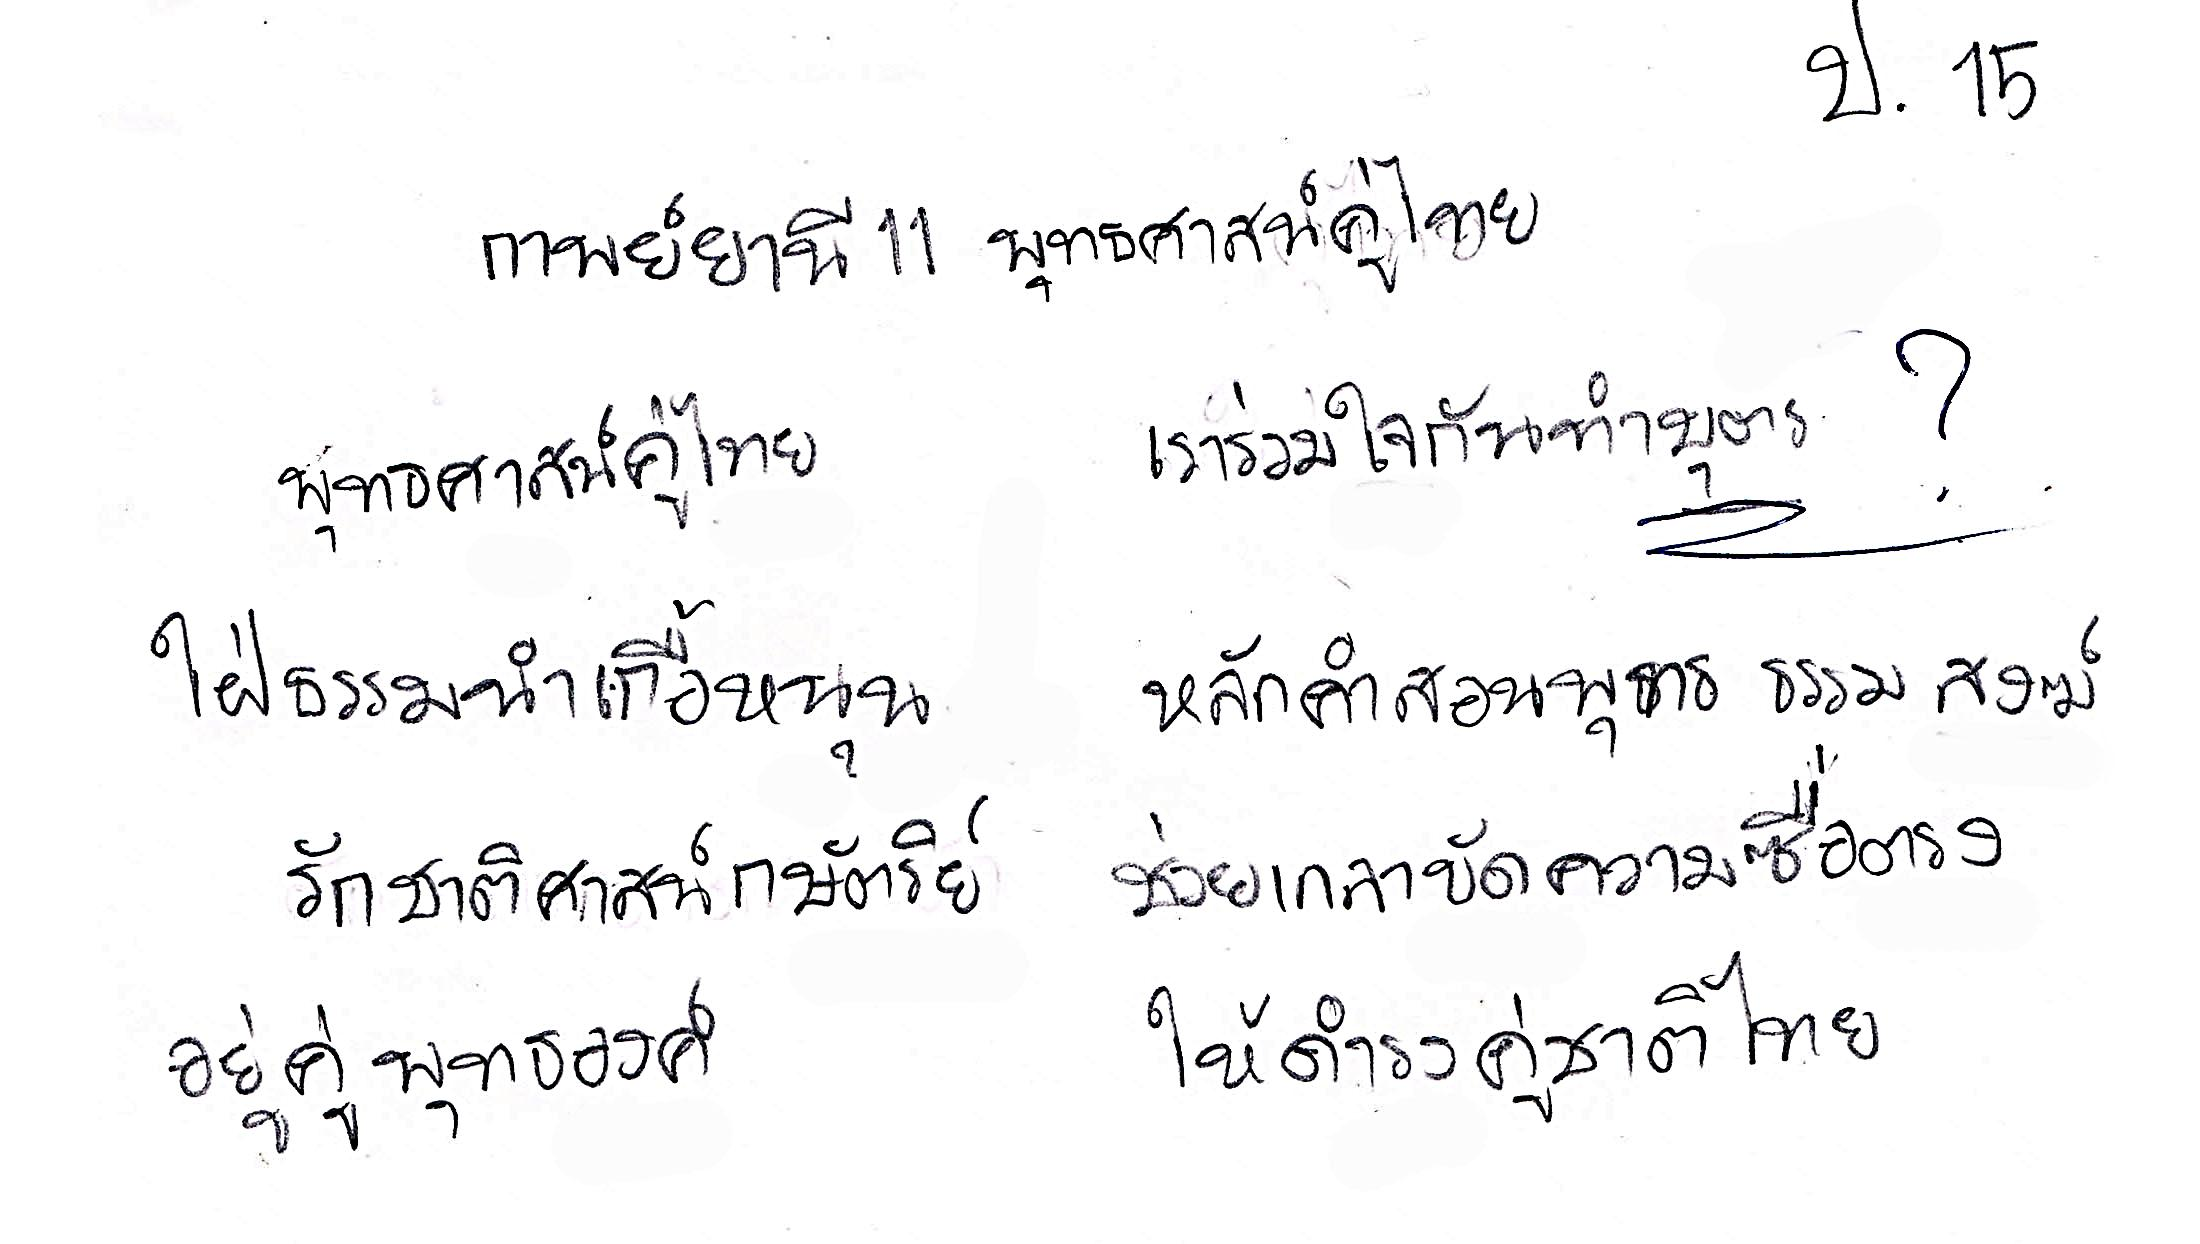 ป. 15
กาพย์ยานี 11 พุทธศาสน์คู่ไทย
พุทธศาสน์คู่ไทย เราร่วมใจกันทำบุตร ?
ใฝ่ธรรมนำเกื้อหนุน หลักคำสอนพุทธ ธรรม สงฆ์
รักชาติศาสน์กษัตริย์ ช่วยเกลาขัดความซื่อตรง
อยู่คู่พุทธองค์ ให้ดำรงคู่ชาติไทย